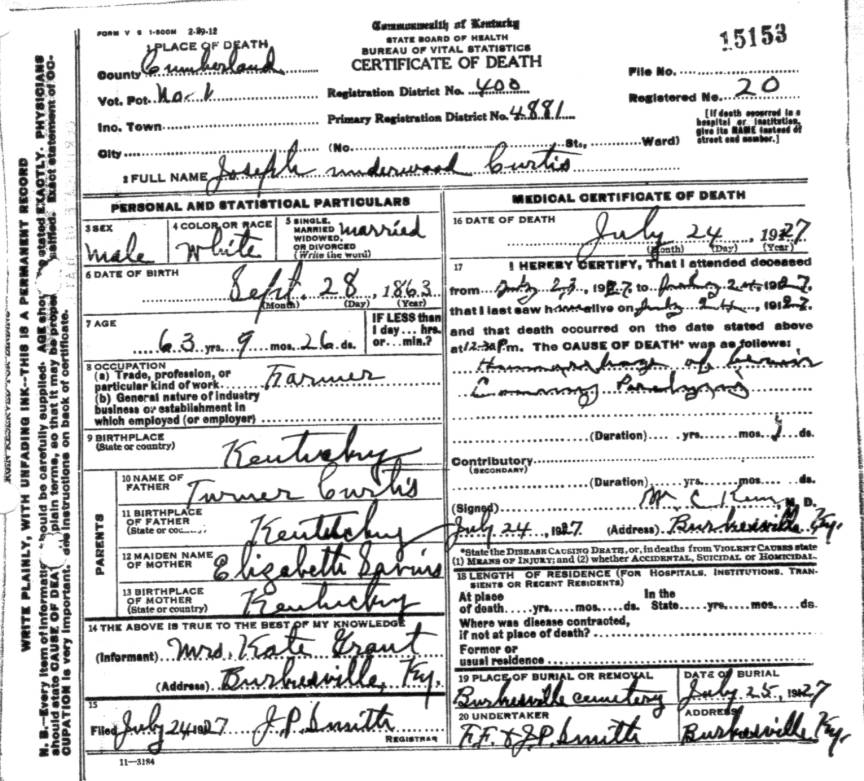 FORM V S 1-500M 2-29-12
Commonwealth of Kentucky
STATE BOARD OF HEALTH
BUREAU OF VITAL STATISTICS
CERTIFICATE OF DEATH
15153
1 PLACE OF DEATH
County Cumberland
Vot. Pct. No. 1
Inc. Town
City (No. St., Ward)
Registration District No. 400
Primary Registration District No. 4881
File No.
Registered No. 20
[If death occurred in a
hospital or institution,
give its NAME instead of
street and number.]
2 FULL NAME Joseph Underwood Curtis
PERSONAL AND STATISTICAL PARTICULARS
3 SEX
male
4 COLOR OR RACE
White
5 SINGLE,
MARRIED
WIDOWED,
OR DIVORCED
(Write the word)
married
6 DATE OF BIRTH
Sept. 28, 1863
(Month) (Day) (Year)
7 AGE
63 yrs. 9 mos. 26 ds.
IF LESS than
1 day... hrs.
or... min.?
8 OCCUPATION
(a) Trade, profession, or
particular kind of work Farmer
(b) General nature of industry
business or establishment in
which employed (or employer)
9 BIRTHPLACE
(State or country)
Kentucky
PARENTS
10 NAME OF
FATHER
Turner Curtis
11 BIRTHPLACE
OF FATHER
(State or
Kentucky
12 MAIDEN NAME
OF MOTHER
Elizabeth
13 BIRTHPLACE
OF MOTHER
(State or country)
Kentucky
14 THE ABOVE IS TRUE TO THE BEST OF MY KNOWLEDGE
(Informant) Mrs. Kate Grant
(Address) Burkesville, Ky.
15
Filed July 24 1927 J.P. Smith
REGISTRAR
11—3184
MEDICAL CERTIFICATE OF DEATH
16 DATE OF DEATH
July 24, 1927
(Month) (Day) (Year)
17 I HEREBY CERTIFY, That I attended deceased
from July 23, 1927, to July 24, 1927,
that I last saw him alive on July 24, 1927,
and that death occurred on the date stated above
at 12:30 P.m. The CAUSE OF DEATH* was as follows:
Hemorrhage of brain
(Duration) yrs. mos. 1 ds.
Contributory
(SECONDARY)
(Duration) yrs. mos. ds.
(Signed) W C M. D.
July 24, 1927 (Address) Burkesville Ky.
*State the DISEASE CAUSING DEATH, or, in deaths from VIOLENT CAUSES state
(1) MEANS OF INJURY; and (2) whether ACCIDENTAL, SUICIDAL or HOMICIDAL
18 LENGTH OF RESIDENCE (FOR HOSPITALS, INSTITUTIONS, TRAN-
SIENTS OR RECENT RESIDENTS)
At place
of death yrs. mos. ds.
In the
State yrs. mos. ds.
Where was disease contracted,
if not at place of death?
Former or
usual residence
19 PLACE OF BURIAL OR REMOVAL
Burkesville cemetery
DATE OF BURIAL
July 25, 1927
20 UNDERTAKER
F.F. & J.P. Smith
ADDRESS
Burkesville Ky.
WRITE PLAINLY, WITH UNFADING INK—THIS IS A PERMANENT RECORD
N. B.—Every item of informati should be carefully supplied. AGE shou stated EXACTLY. PHYSICIANS
should state CAUSE OF DEA plain terms, so that it may be proper sified. Exact statement of OC-
CUPATION is very important. See instructions on back of certificate.